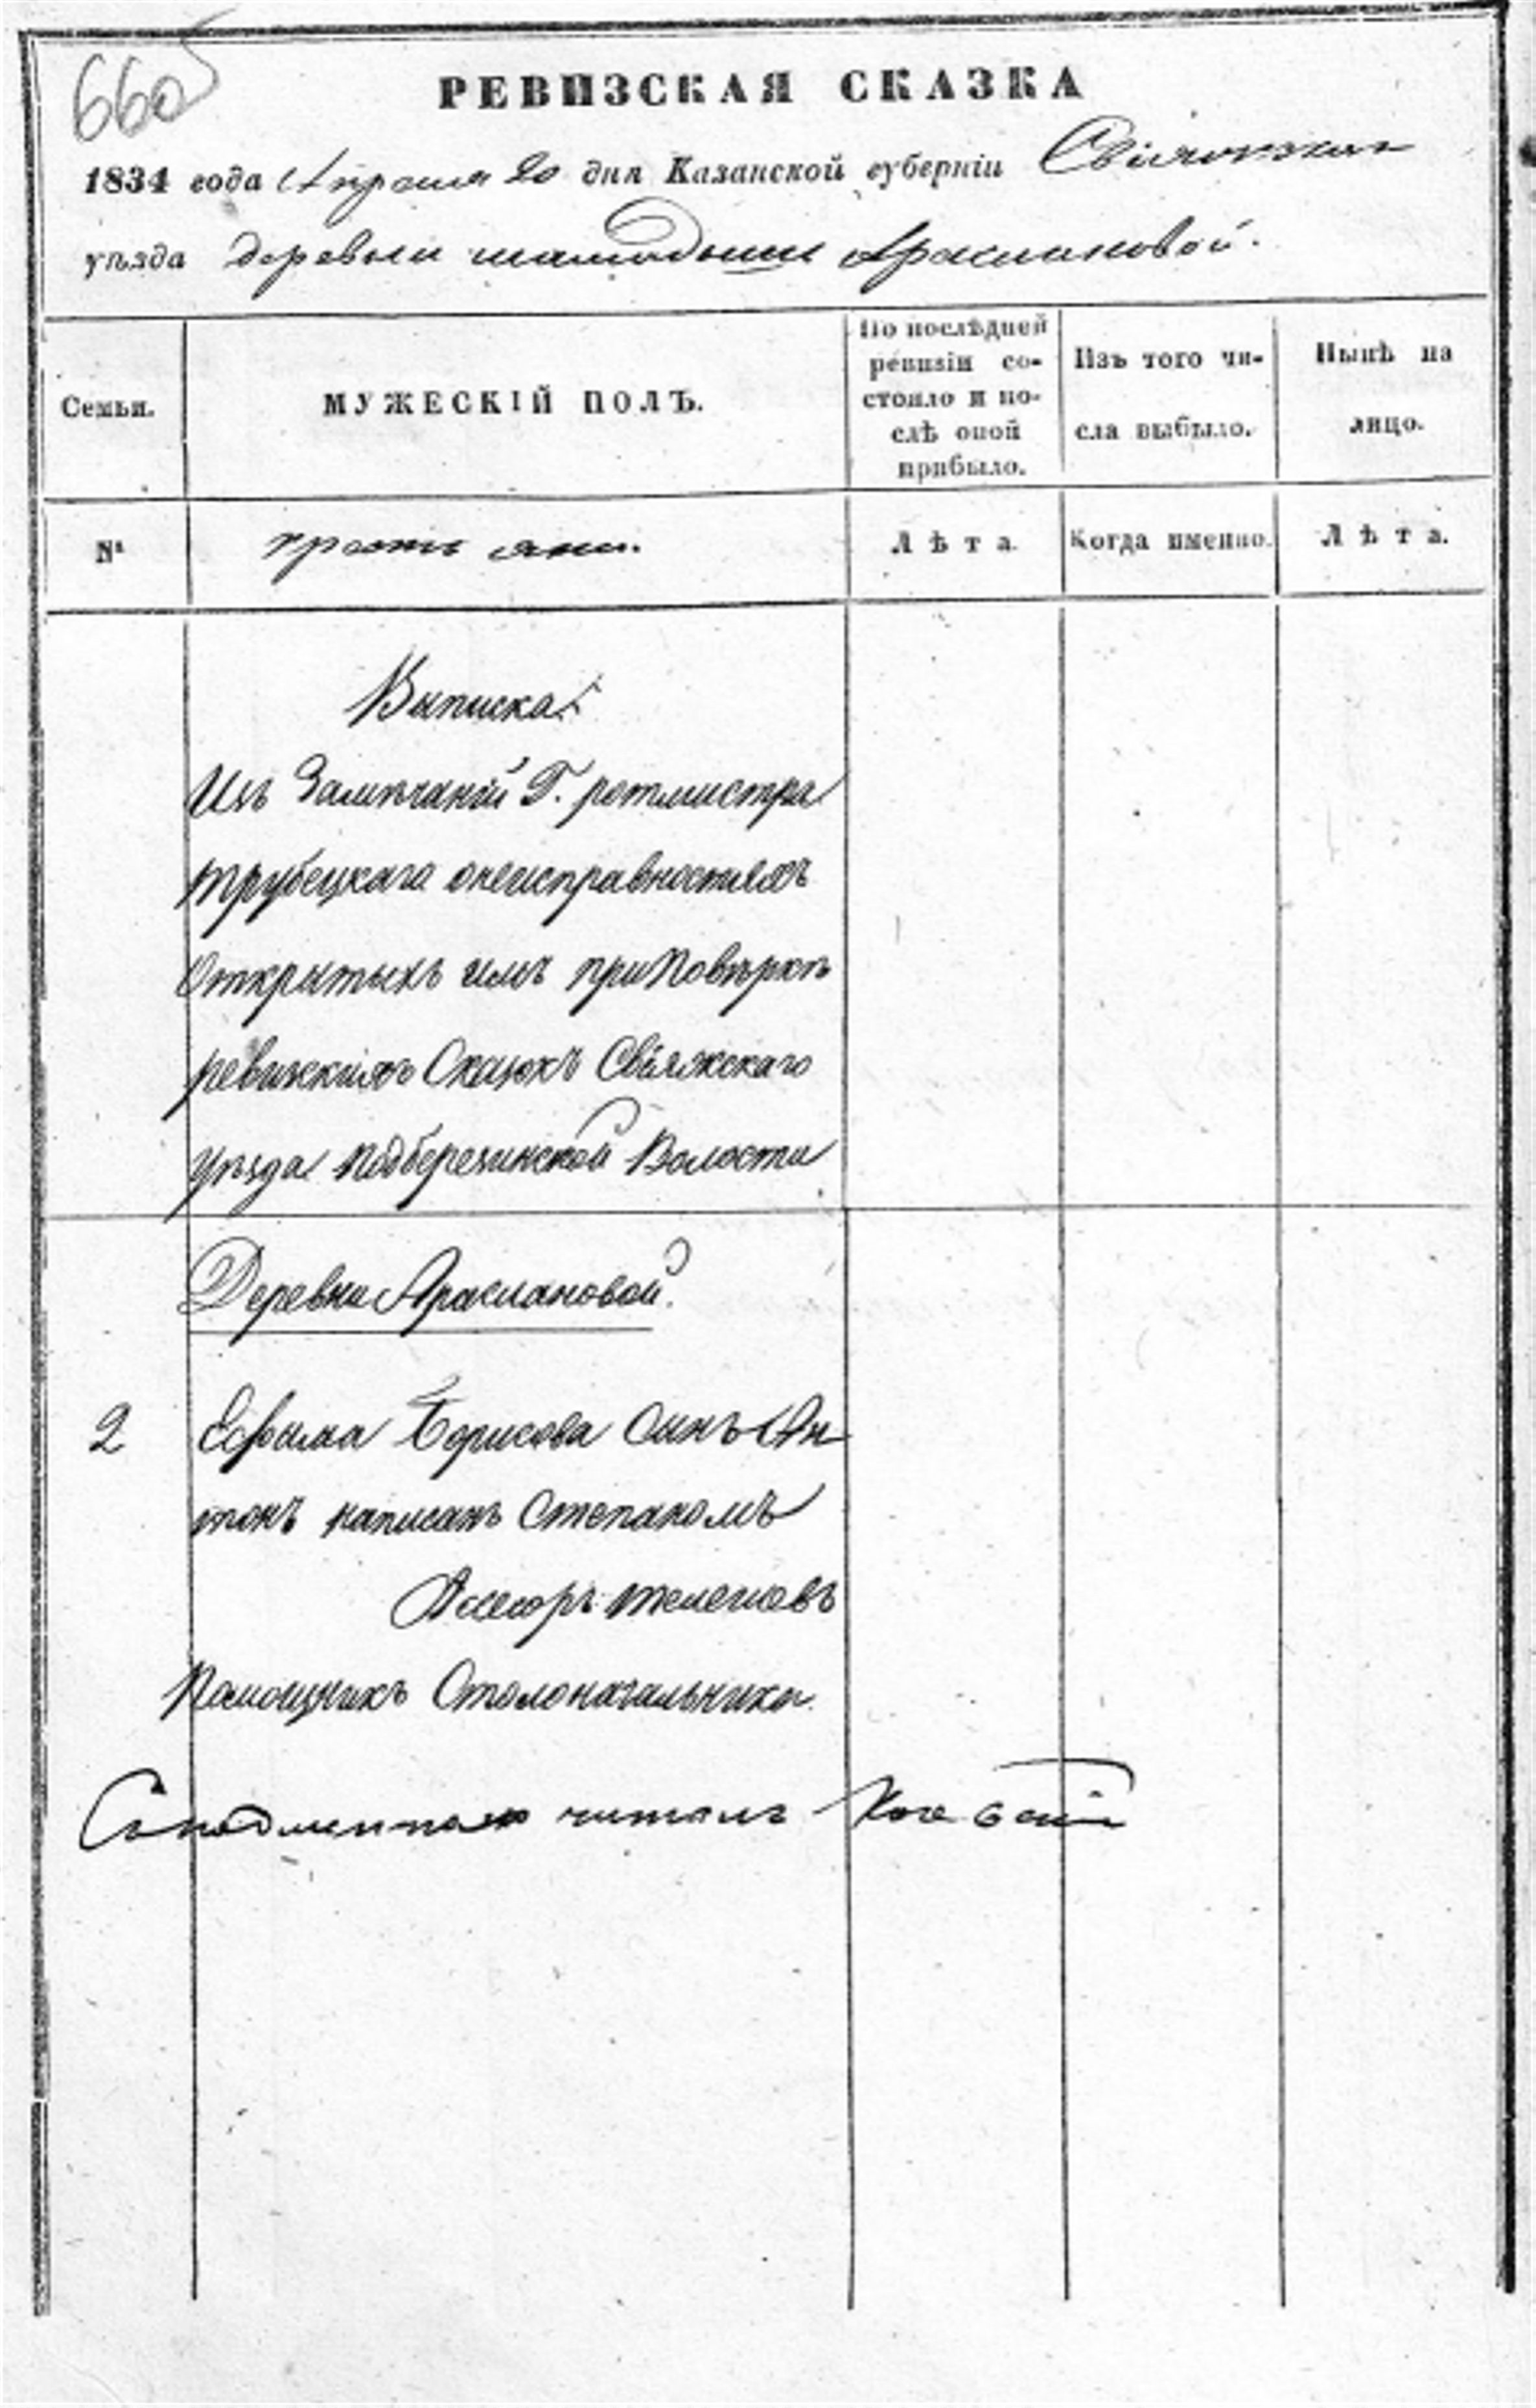 660
РЕВИЗСКАЯ СКАЗКА
1834 года Апреля 20 дня Казанской губерніи Свіяжскаго
уѣзда деревни Араслановой.
Семьи.
МУЖЕСКІЙ ПОЛЪ.
По послѣдней
ревизіи со-
стояло и по-
слѣ оной
прибыло.
Изъ того чи-
сла выбыло.
Нынѣ на
лицо.
№
крестьяне.
Лѣта.
Когда именно.
Лѣта.
Выписка
Изъ Замѣчаній Г. ротмистра
Трубецкаго онеисправностяхъ
Открытыхъ имъ приПовѣркѣ
ревижкихъ Сказокъ Свіяжскаго
Уѣзда Подберезинской Волости
Деревни Араслановой.
2
Ефима Борисова Сынъ Ан
тонъ написанъ Степаномъ
Асесоръ
Помощникъ Столоначальника
читалъ